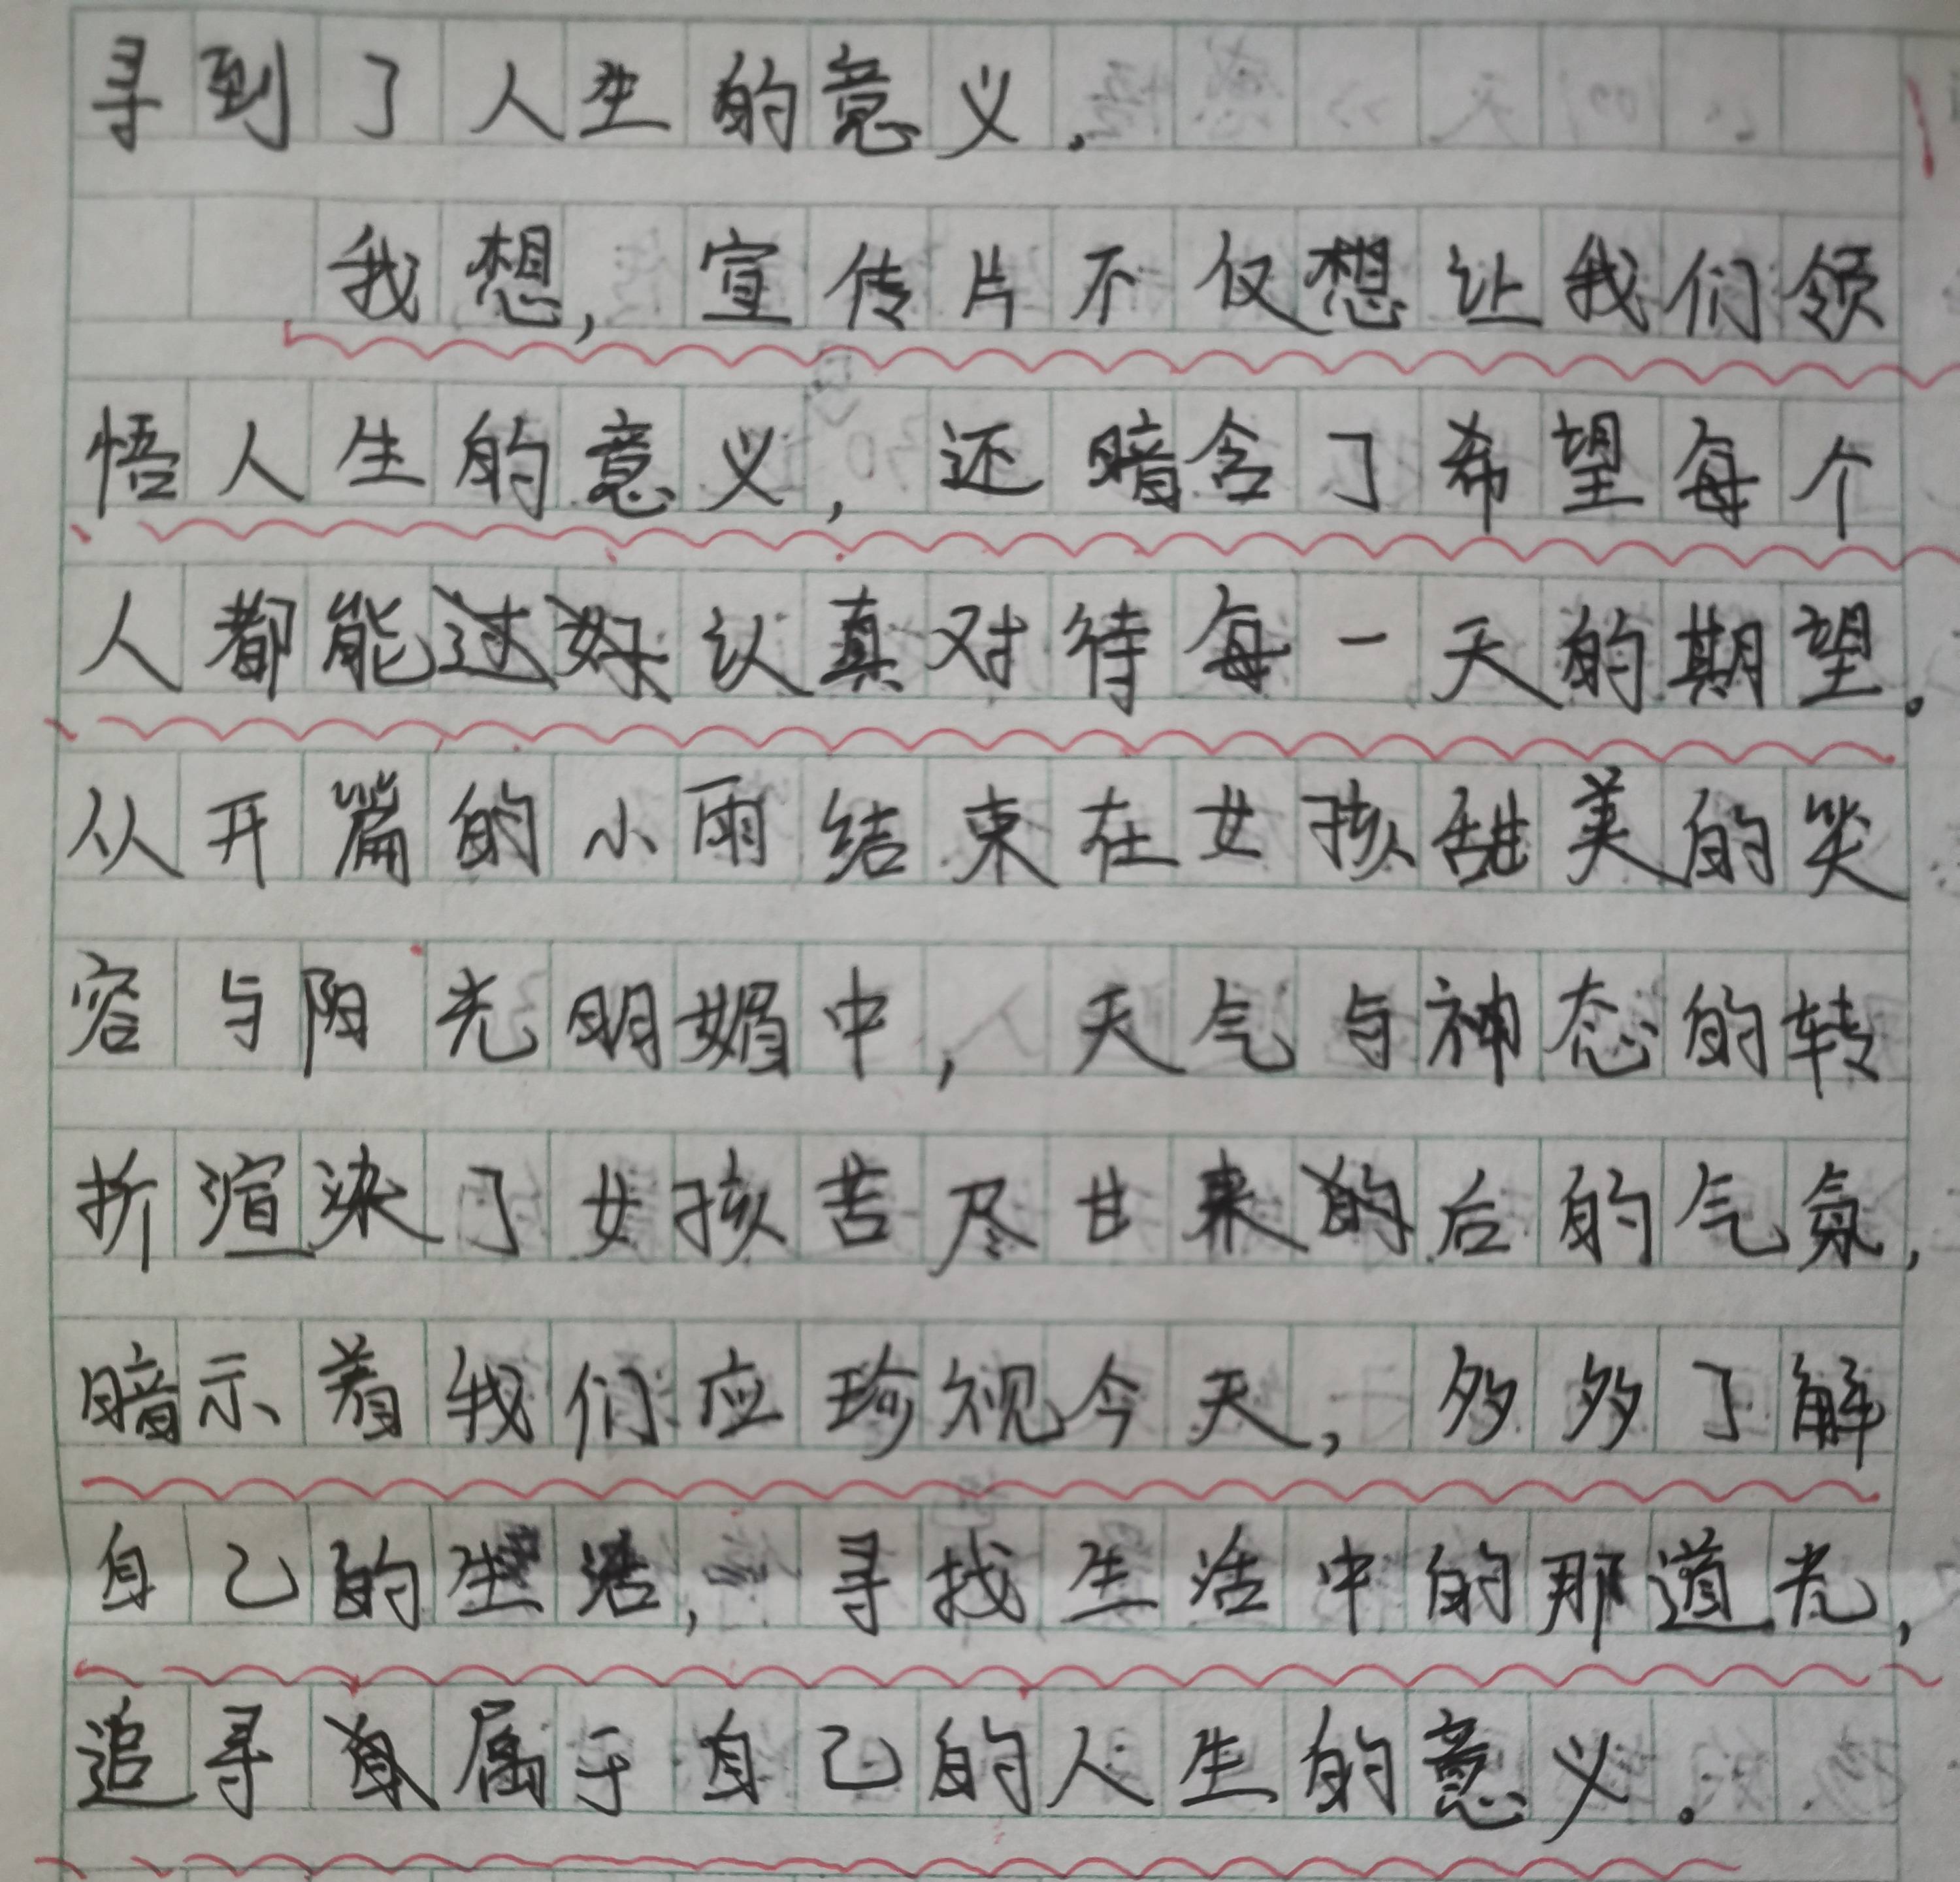 寻到了人生的意义.
我想,宣传片不仅想让我们领
悟人生的意义,还暗含了希望每个
人都能认真对待每一天的期望。
从开篇的小雨结束在女孩甜美的笑
容与阳光明媚中,天气与神态的转
折渲染了女孩苦尽甘来后的气氛,
暗示着我们应珍视今天,多多了解
自己的生活,寻找生活中的那道光,
追寻属于自己的人生的意义。